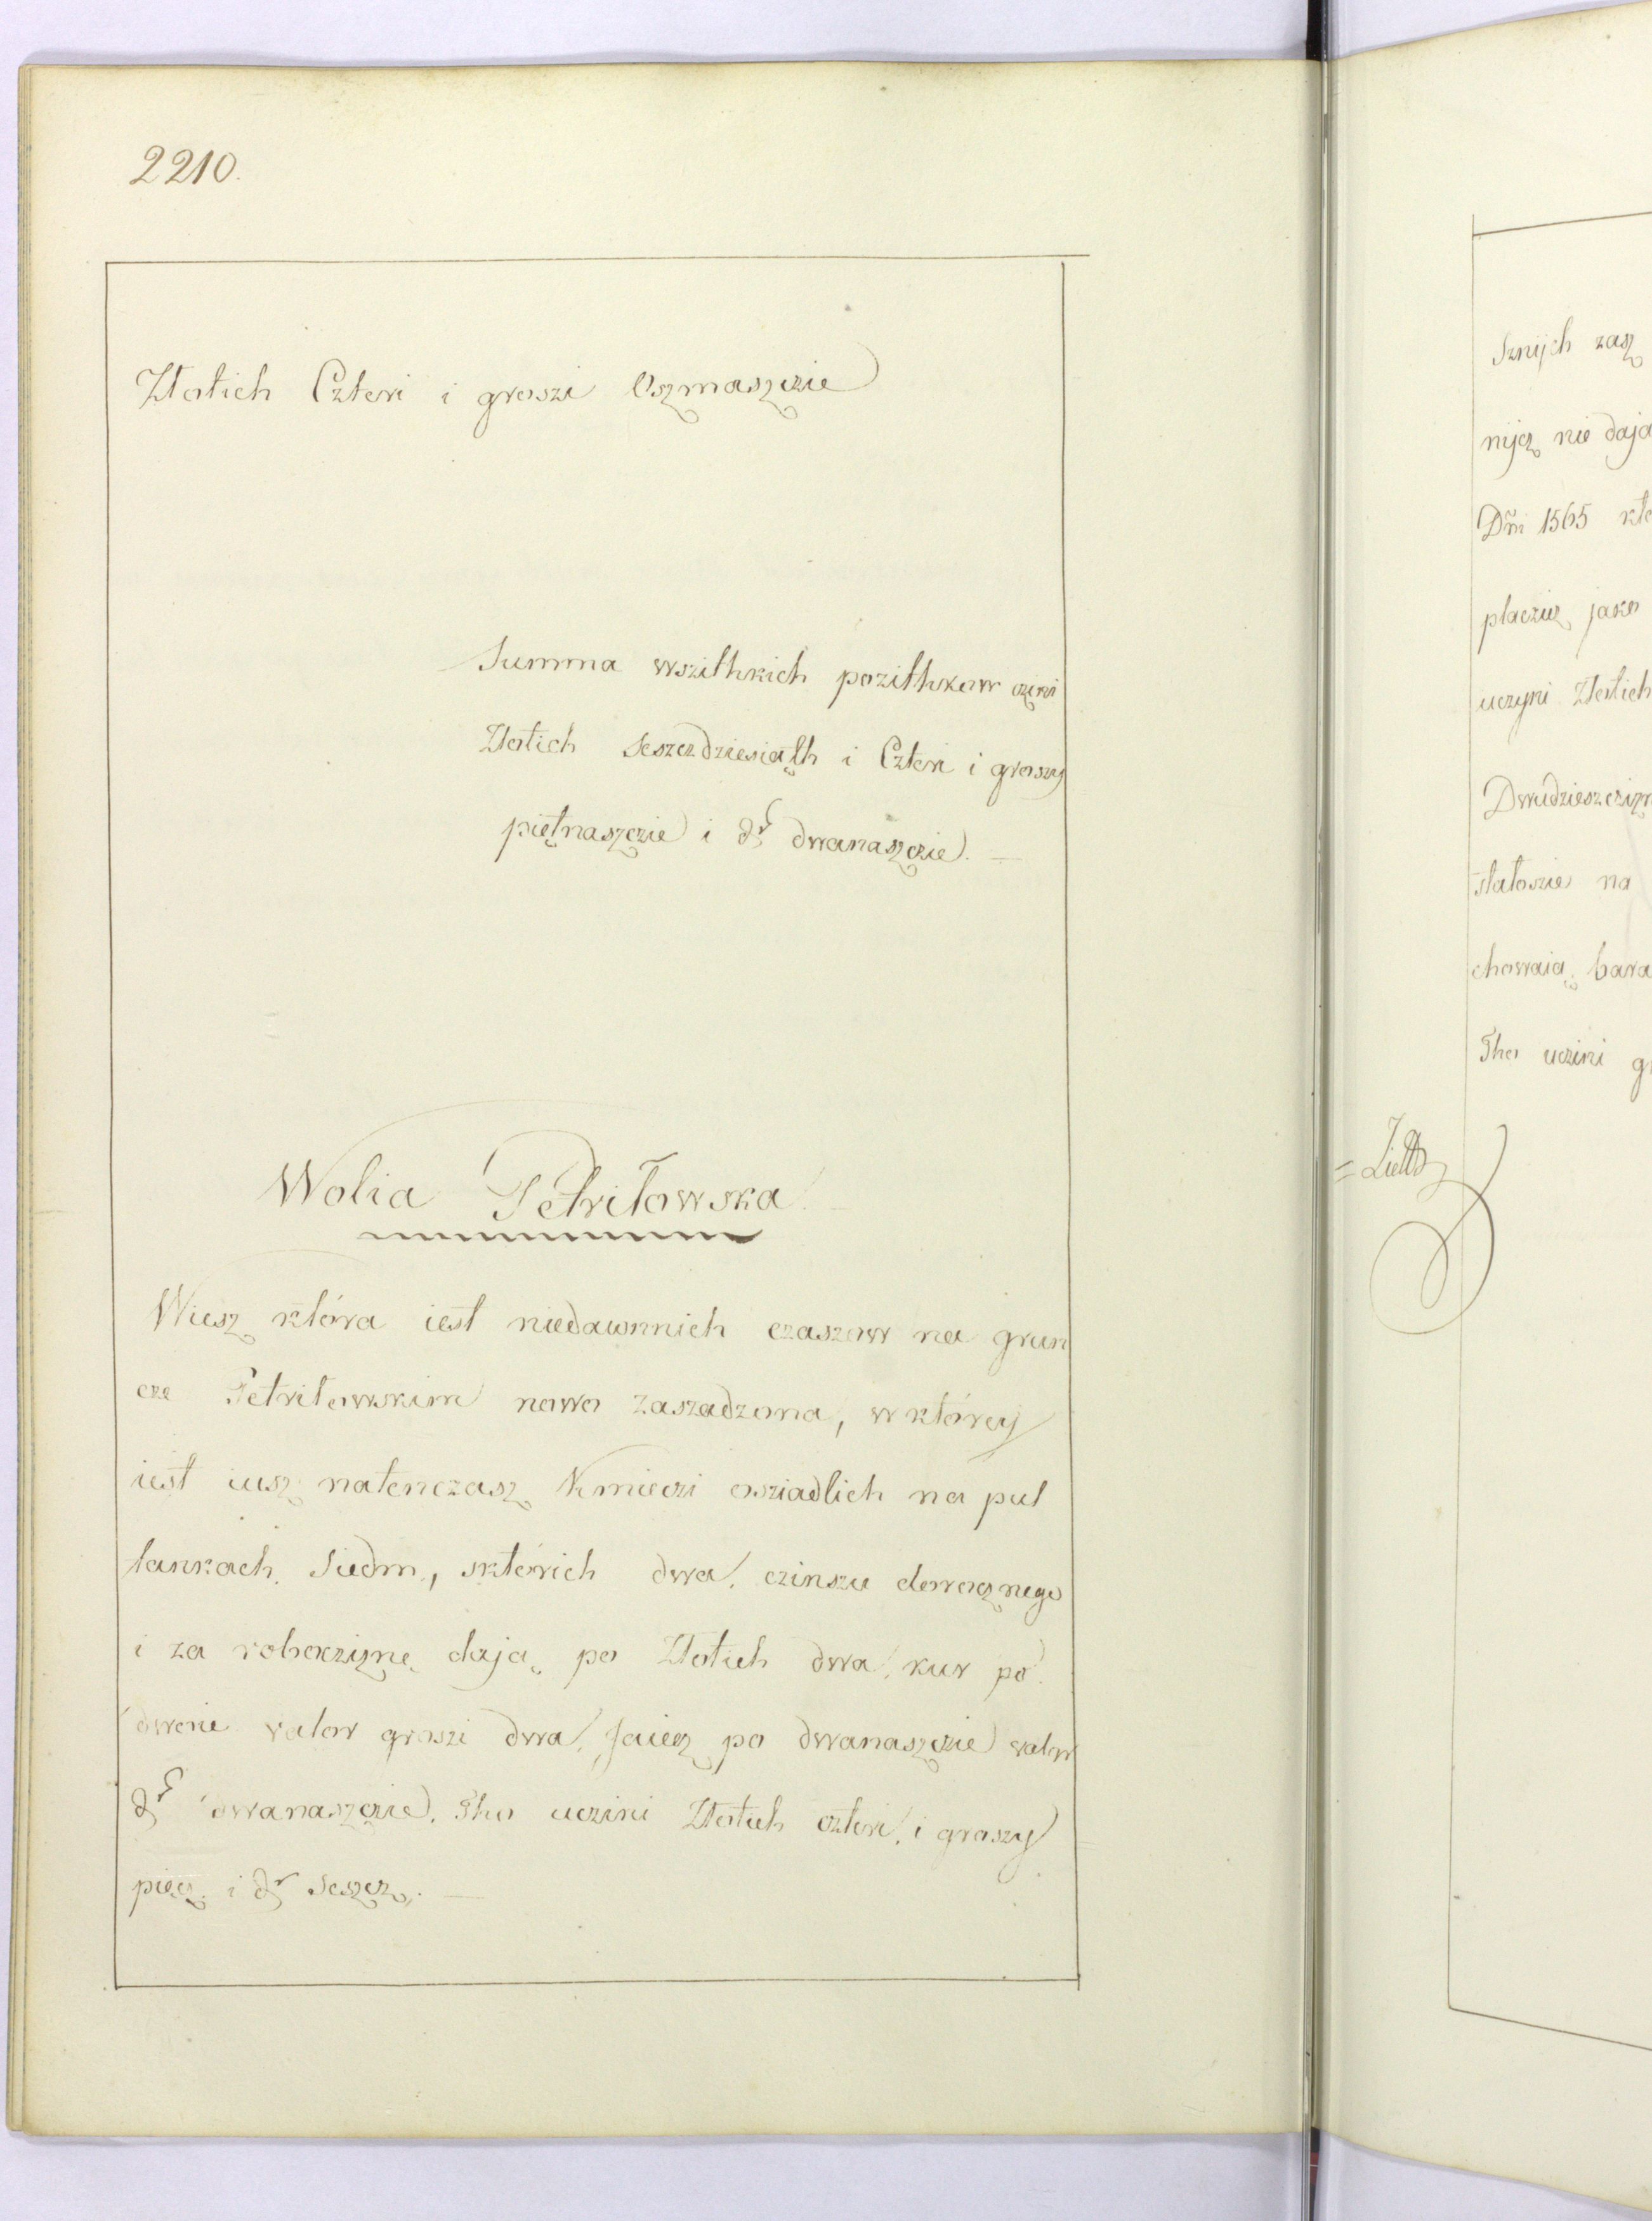 2210.
Złotich Czteri i groszi Oszmaszczie
Summa wszithkich pozithkow czini
Złotich Seszczdziesiąth i Czteri i groszy
piętnaszczie i dr dwanaszczie. —
Wolia Petriłowska.
Wiesz która iest niedawnich czaszow na grun
cze Petriłowskim nowo zaszadzona, w którey
iest iusz natenczasz Kmieczi osziadlich na puł
łankach. Siedm, sktórich dwa. czinszu dorocznego
i za roboczizne dają po Złotich dwa, kur po
dwoie valor groszi dwa, Jaiecz po dwanaszczie valor
dr dwanaszczie. Tho uczini Złotich czteri, i groszy
pięcz i dr Seszcz. —
Sznijch zasz
nijcz nie daja
Dñi 1565
płacziz jako
uczyni Złotich
Dwudzieszczizn
statoszie na
chowaią bara
Tho uczini g